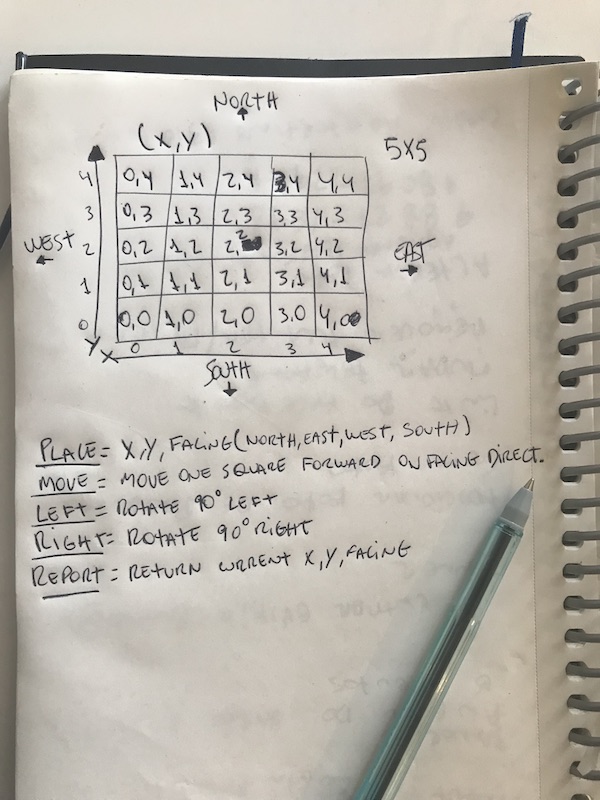 NORTH
(X,Y)
5X5
4 0,4 1,4 2,4 3,4 4,4
3 0,3 1,3 2,3 3,3 4,3
WEST 2 0,2 1,2 2,2 3,2 4,2 EAST
1 0,1 1,1 2,1 3,1 4,1
0 0,0 1,0 2,0 3,0 4,0
Y X 0 1 2 3 4
SOUTH
PLACE = X,Y, FACING(NORTH,EAST,WEST, SOUTH)
MOVE = MOVE ONE SQUARE FORWARD ON FACING DIRECT.
LEFT = ROTATE 90° LEFT
RIGHT = ROTATE 90° RIGHT
REPORT = RETURN CURRENT X,Y, FACING